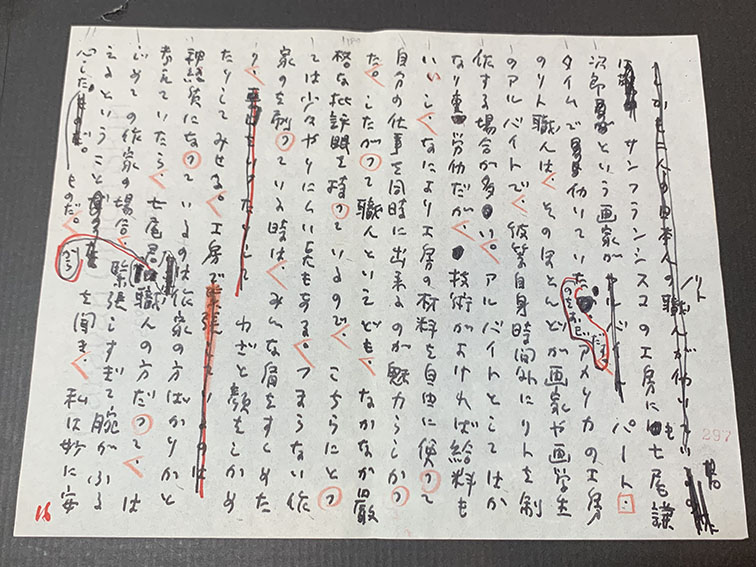 しかも二人の日本人の職人が働いてい
サンフランシスコの工房にも七尾謙
次郎という画家が アルバイト パート
タイムで働いていた。アメリカの工房
のリト職人は、そのほとんどが画家や画学生
のアルバイトで、彼等自身時間外にリトを制
作する場合が多い。アルバイトとしてはか
なり重労働だが、技術がよければ給料も
いいし、なにより工房の材料を自由に使って
自分の仕事を同時に出来るのが魅力らしかっ
た。したがって職人といえども、なかなか厳
格な批評眼を持っているので、こちらにとっ
ては少々やりにくい点もある。つまらない作
家のを刷っている時は、みんな肩をすくめた
り、 わざと顔をしかめ
たりしてみせる。工房で緊張しているのは
神経質になっているのは作家の方ばかりかと
考えていたら、七尾君 職人の方だって、は
じめての作家の場合、緊張しすぎて腕がふる
えるということ を聞き、私は妙に安
心したものだ。
がら
リト
297
16